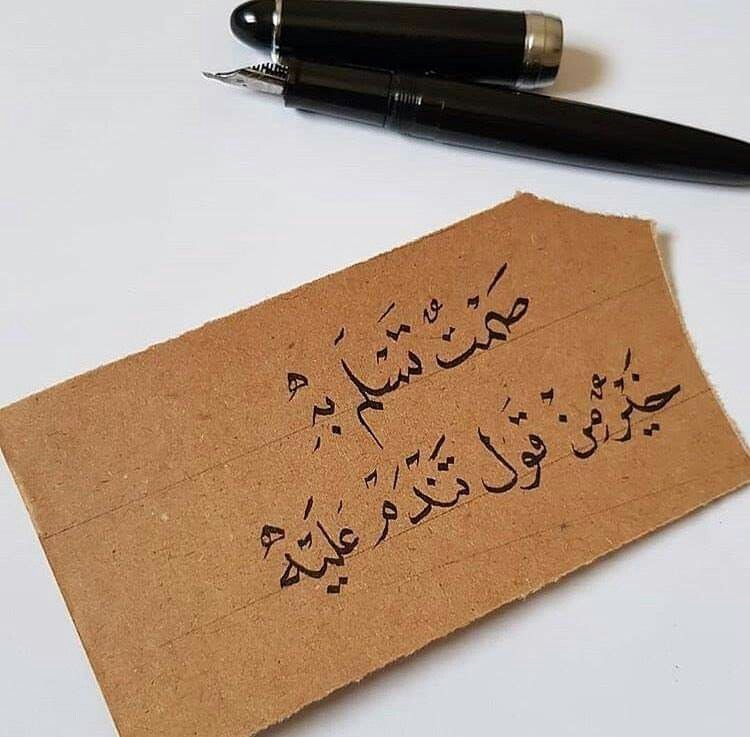 صَمْتٌ تَسْلَمَ بِهِ
خَيْرٌ مِنْ قَول تَنْدَمْ عَلَيْهِ